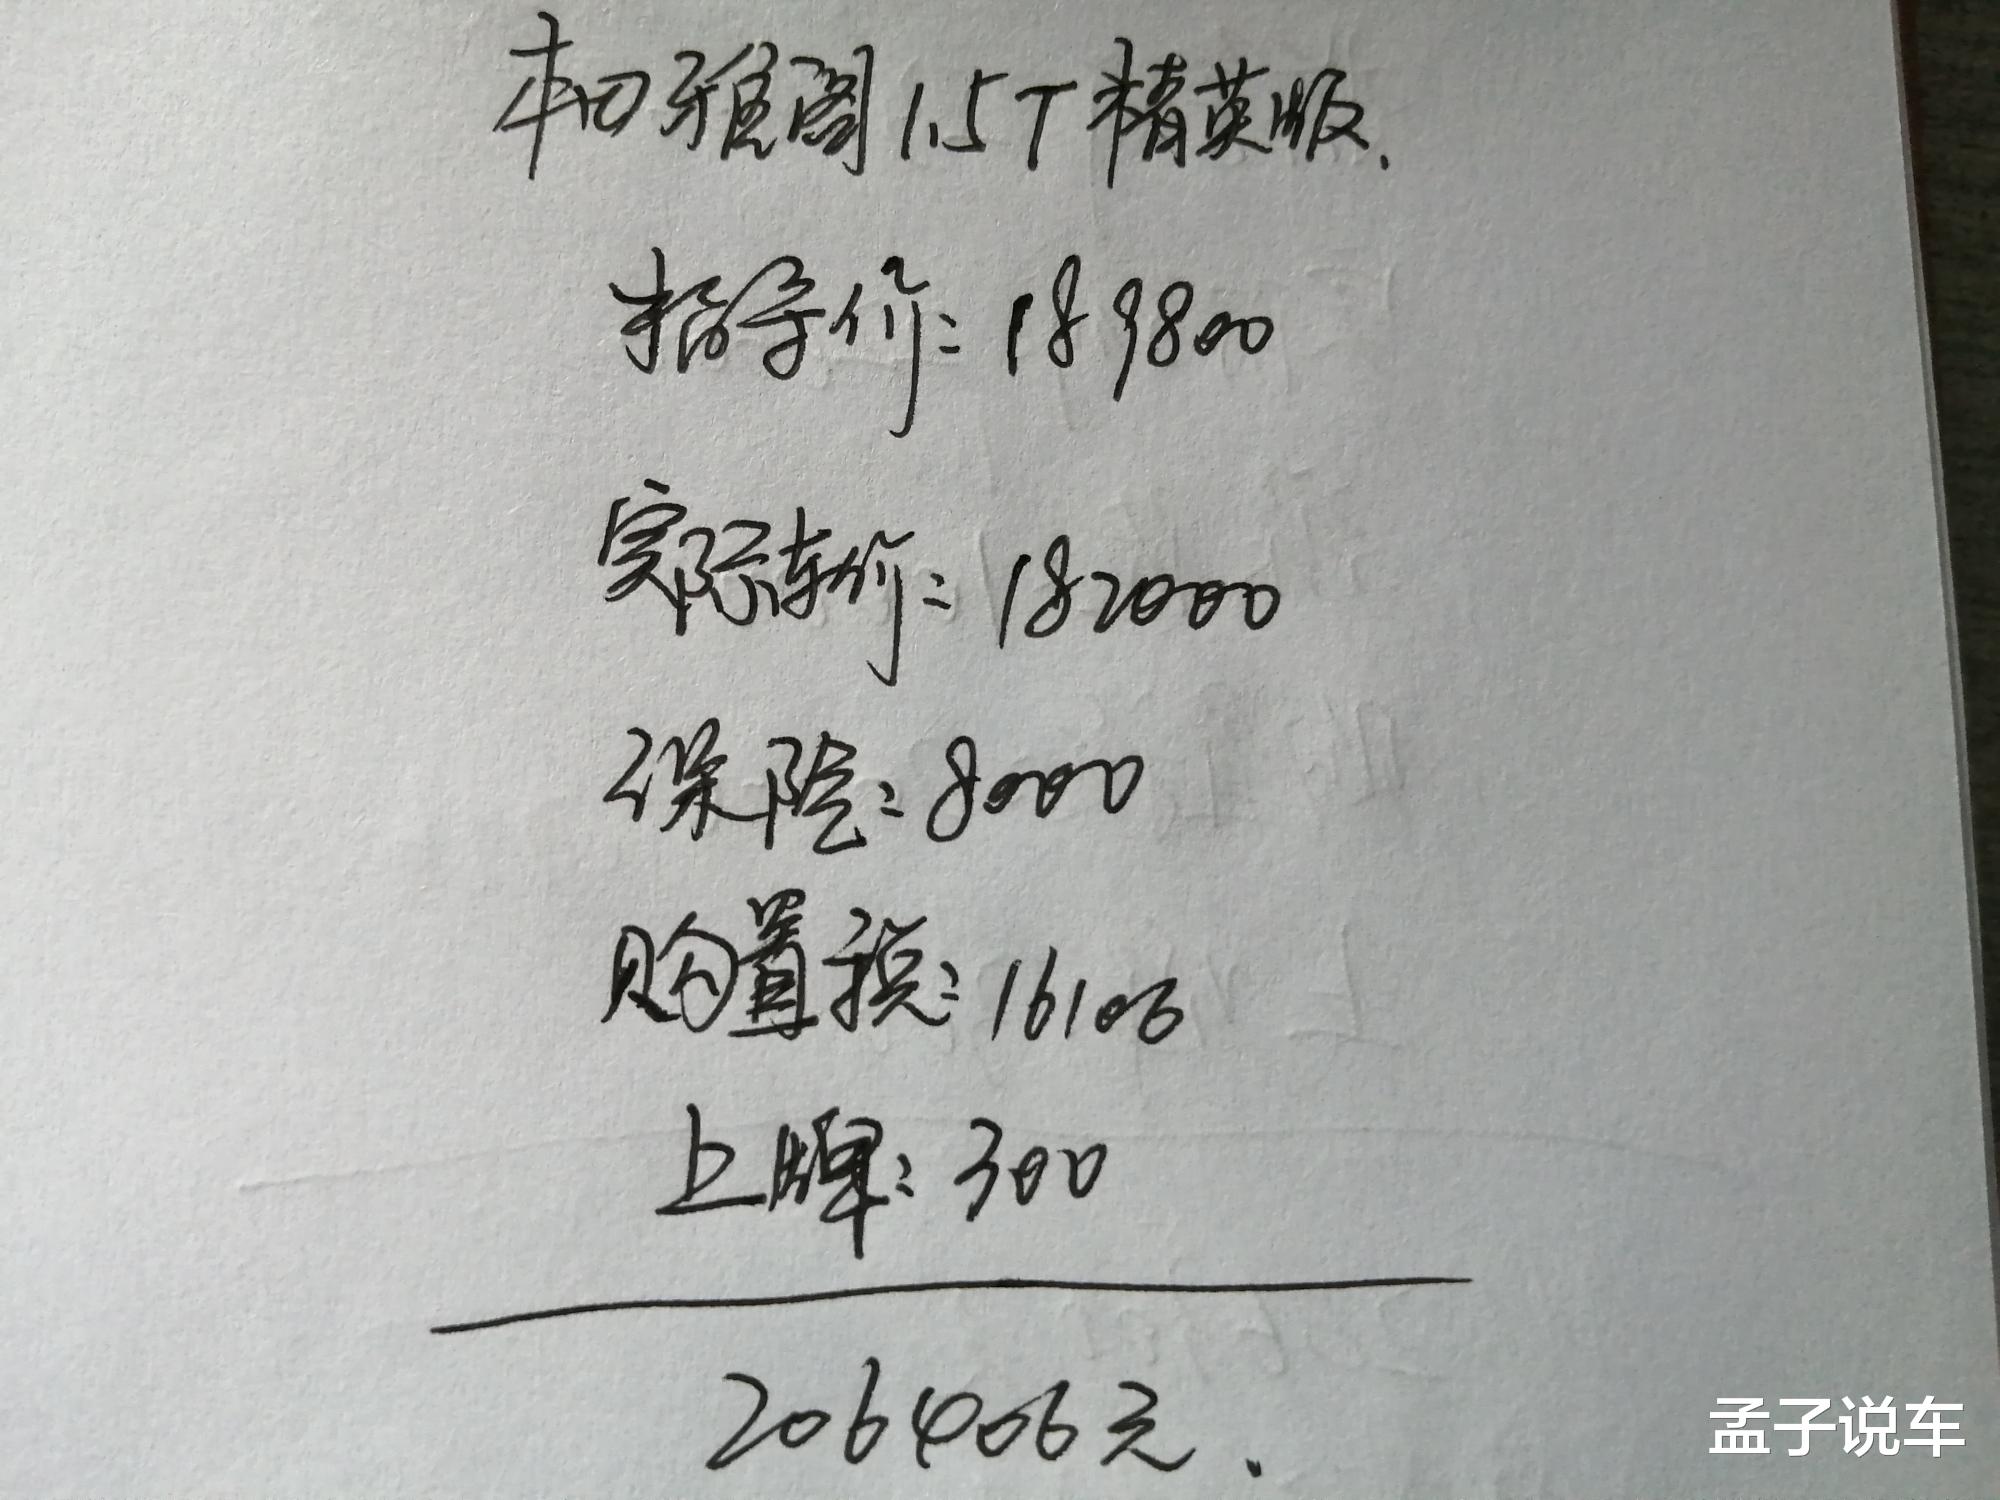 本田雅阁1.5T精英版.
指导价:189800
实际车价:182000
保险:8000
购置税:16106
上牌:300
206406元.
孟子说车